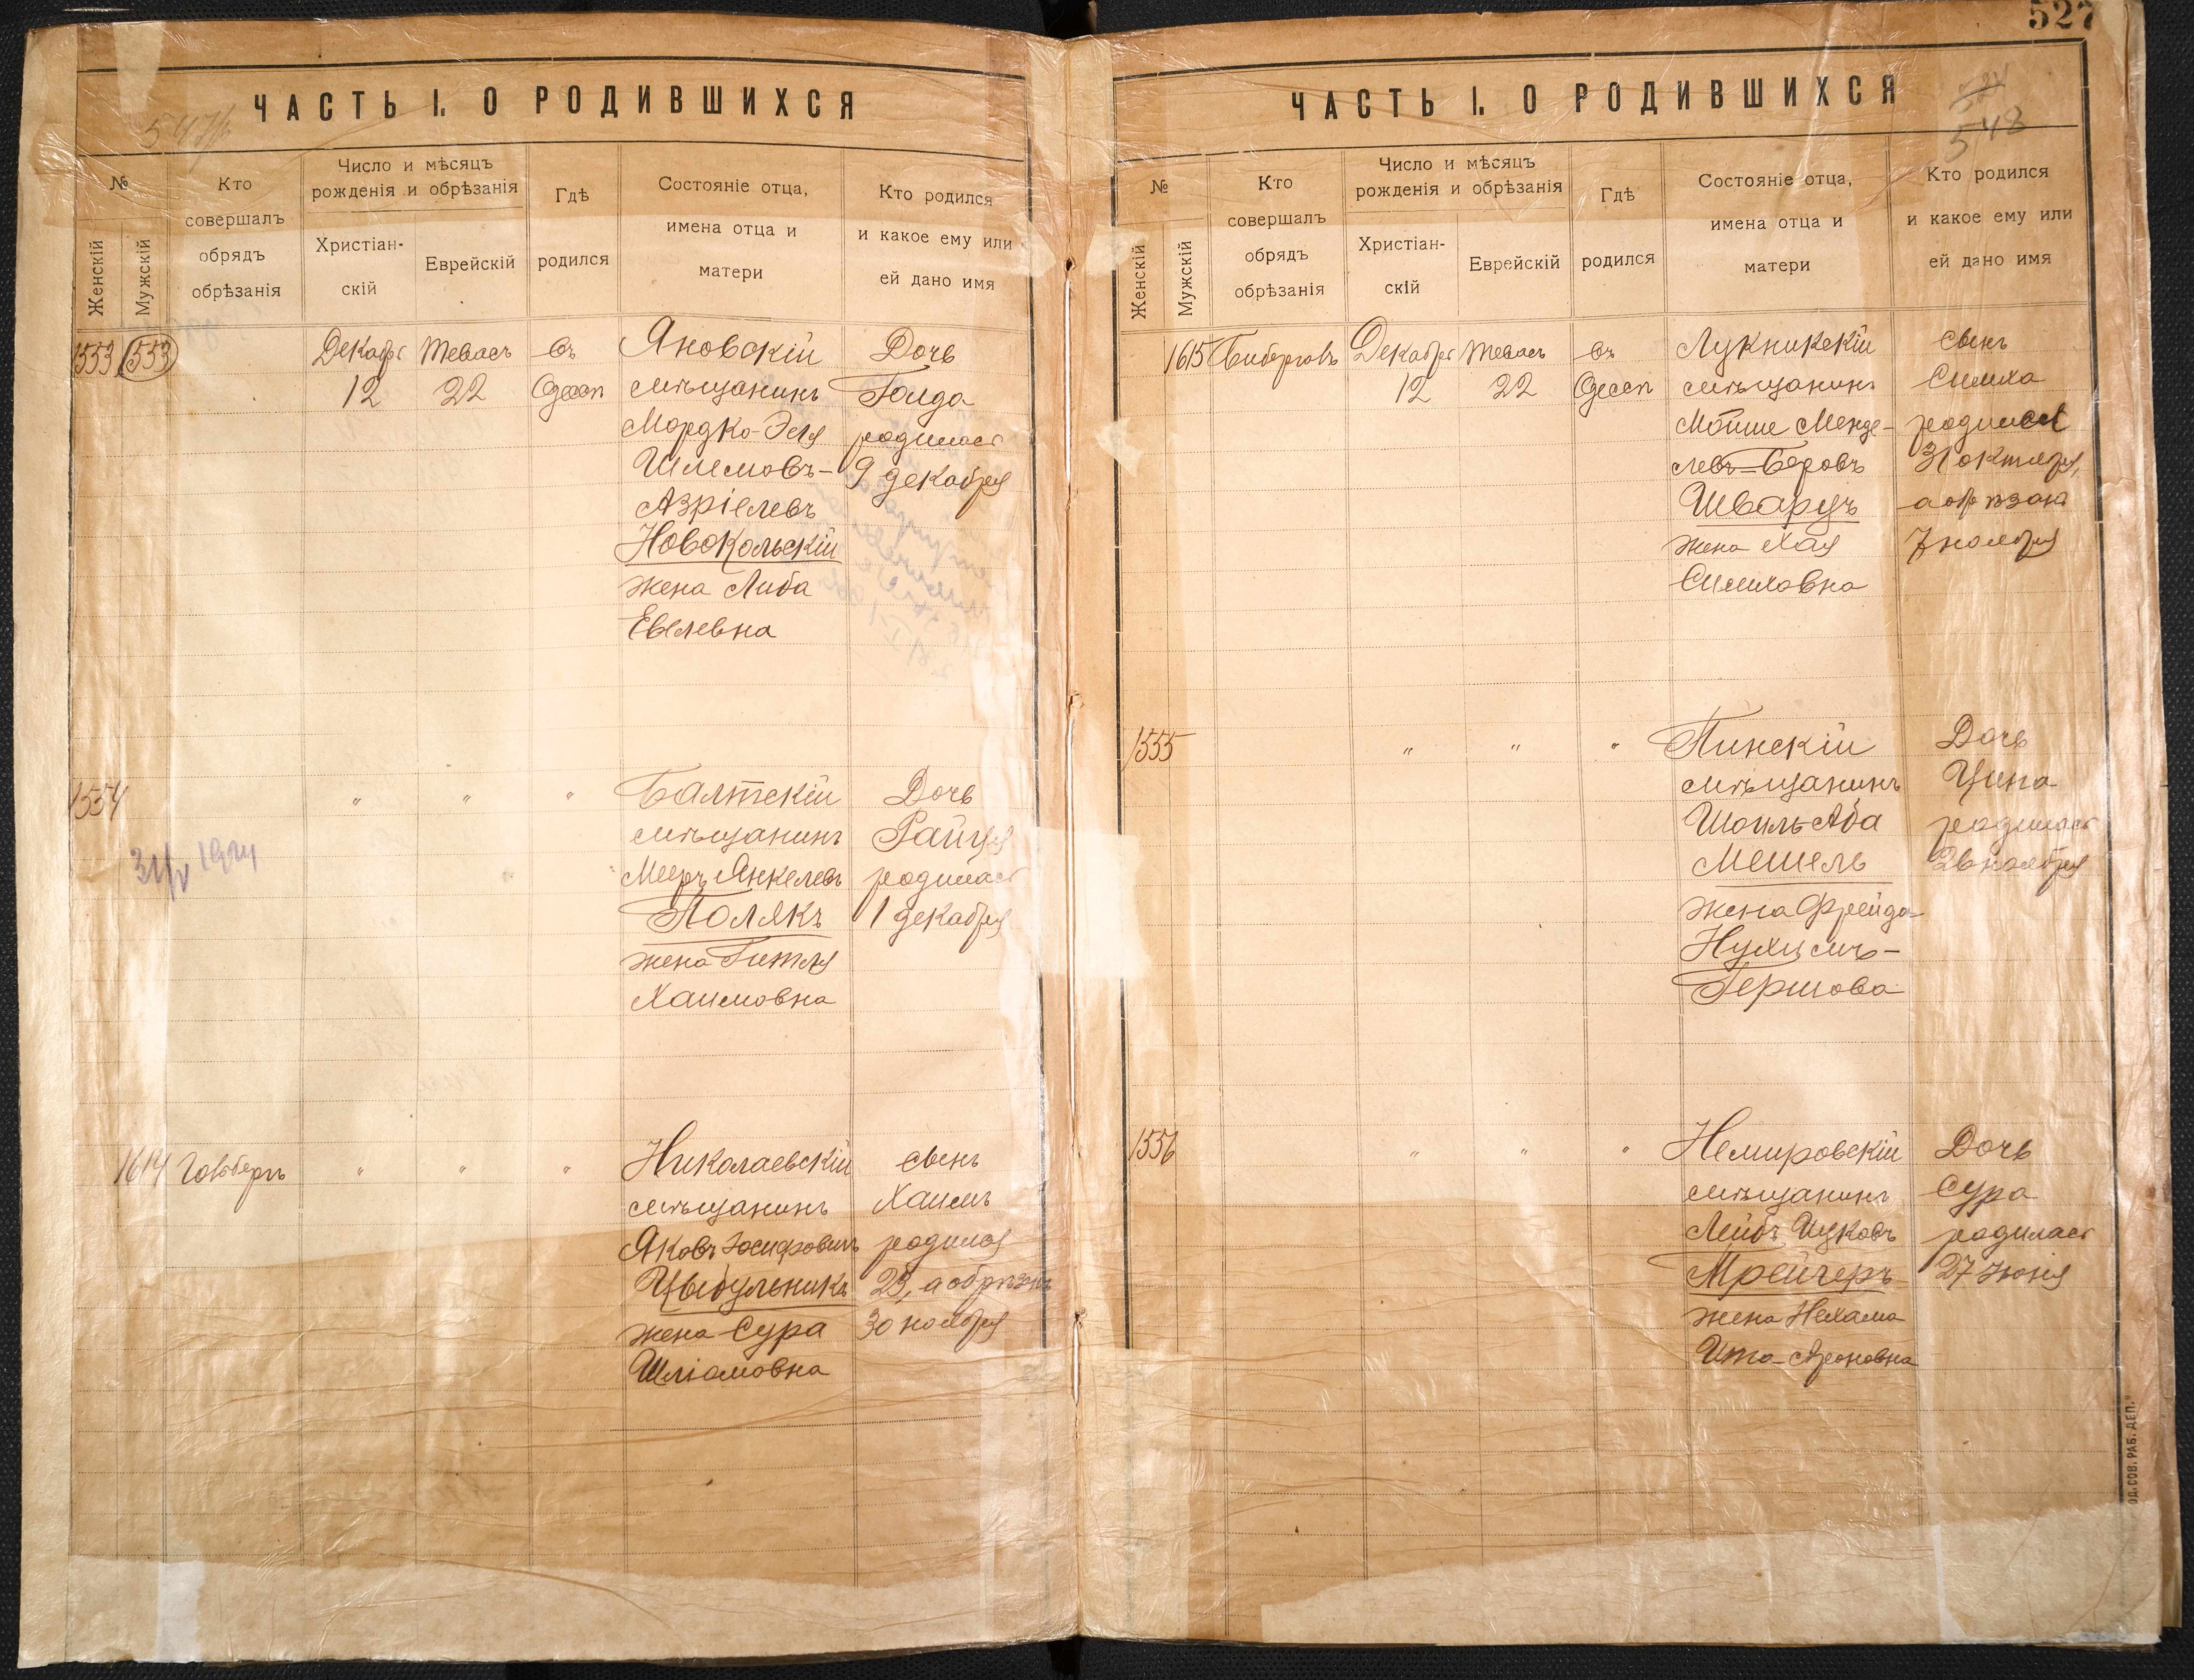 547
ЧАСТЬ I. О РОДИВШИХСЯ
№
Женскій
Мужскій
Кто
совершалъ
обрядъ
обрѣзанія
Число и мѣсяцъ
рожденія и обрѣзанія
Христіан-
скій
Еврейскій
Гдѣ
родился
Состояніе отца,
имена отца и
матери
Кто родился
и какое ему или
ей дано имя
1553 553
Декабрь
12
Тевасъ
22
въ
Одессѣ
Яновскій
мѣщанинъ
Мордко-Эля
Шлемовъ-
Азріелевъ
Новокольскій
жена Либа
Евелевна
Дочь
Голда
родилась
9 декабря
1554
31/V 1924
" " "
Балтскій
мѣщанинъ
Мееръ Янкелевъ
Полякъ
жена Гитля
Хаимовна
Дочь
Райця
родилась
1 декабря
1614
" " "
Николаевскій
мѣщанинъ
Яковъ Іосифовичъ
Цыбульникъ
жена Сура
Шліомовна
сынъ
Хаимъ
родился
23, а обрѣзанъ
30 ноября
527
ЧАСТЬ I. О РОДИВШИХСЯ
548
№
Женскій
Мужскій
Кто
совершалъ
обрядъ
обрѣзанія
Число и мѣсяцъ
рожденія и обрѣзанія
Христіан-
скій
Еврейскій
Гдѣ
родился
Состояніе отца,
имена отца и
матери
Кто родился
и какое ему или
ей дано имя
1615
Декабрь
12
Тевасъ
22
въ
Одессѣ
Лукникскій
мѣщанинъ
Мойше Менде-
левъ-Беровъ
Шварцъ
жена Хая
Симховна
сынъ
Симха
родился
31 октября,
а обрѣзанъ
7 ноября
1555
" " "
Пинскій
мѣщанинъ
Шоиль Аба
Мешель
жена Фрейда-
Нухимъ-
Гершова
Дочь
Ципа
родилась
26 ноября
1556
" " "
Немировскій
мѣщанинъ
Лейбъ Ицковъ
Мрейчеръ
жена Нехама
Ита-Ароновна
Дочь
Сура
родилась
27 іюня
ОД. СОВ. РАБ. ДЕП."